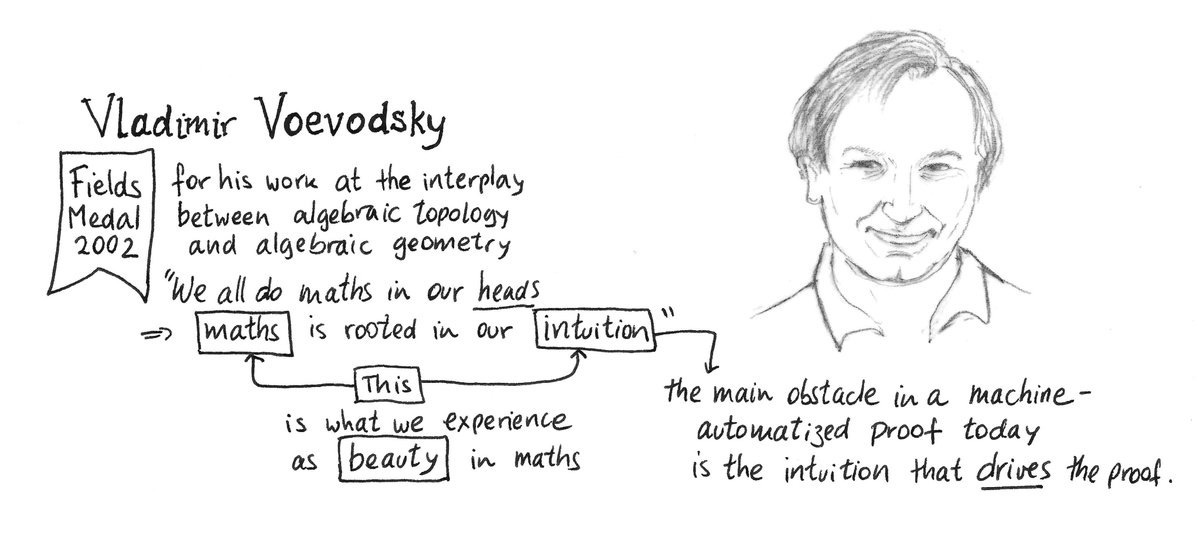 Vladimir Voevodsky
Fields
Medal
2002
for his work at the interplay
between algebraic topology
and algebraic geometry
"We all do maths in our heads
⇒ maths is rooted in our intuition"
This
is what we experience
as beauty in maths
the main obstacle in a machine-
automatized proof today
is the intuition that drives the proof.